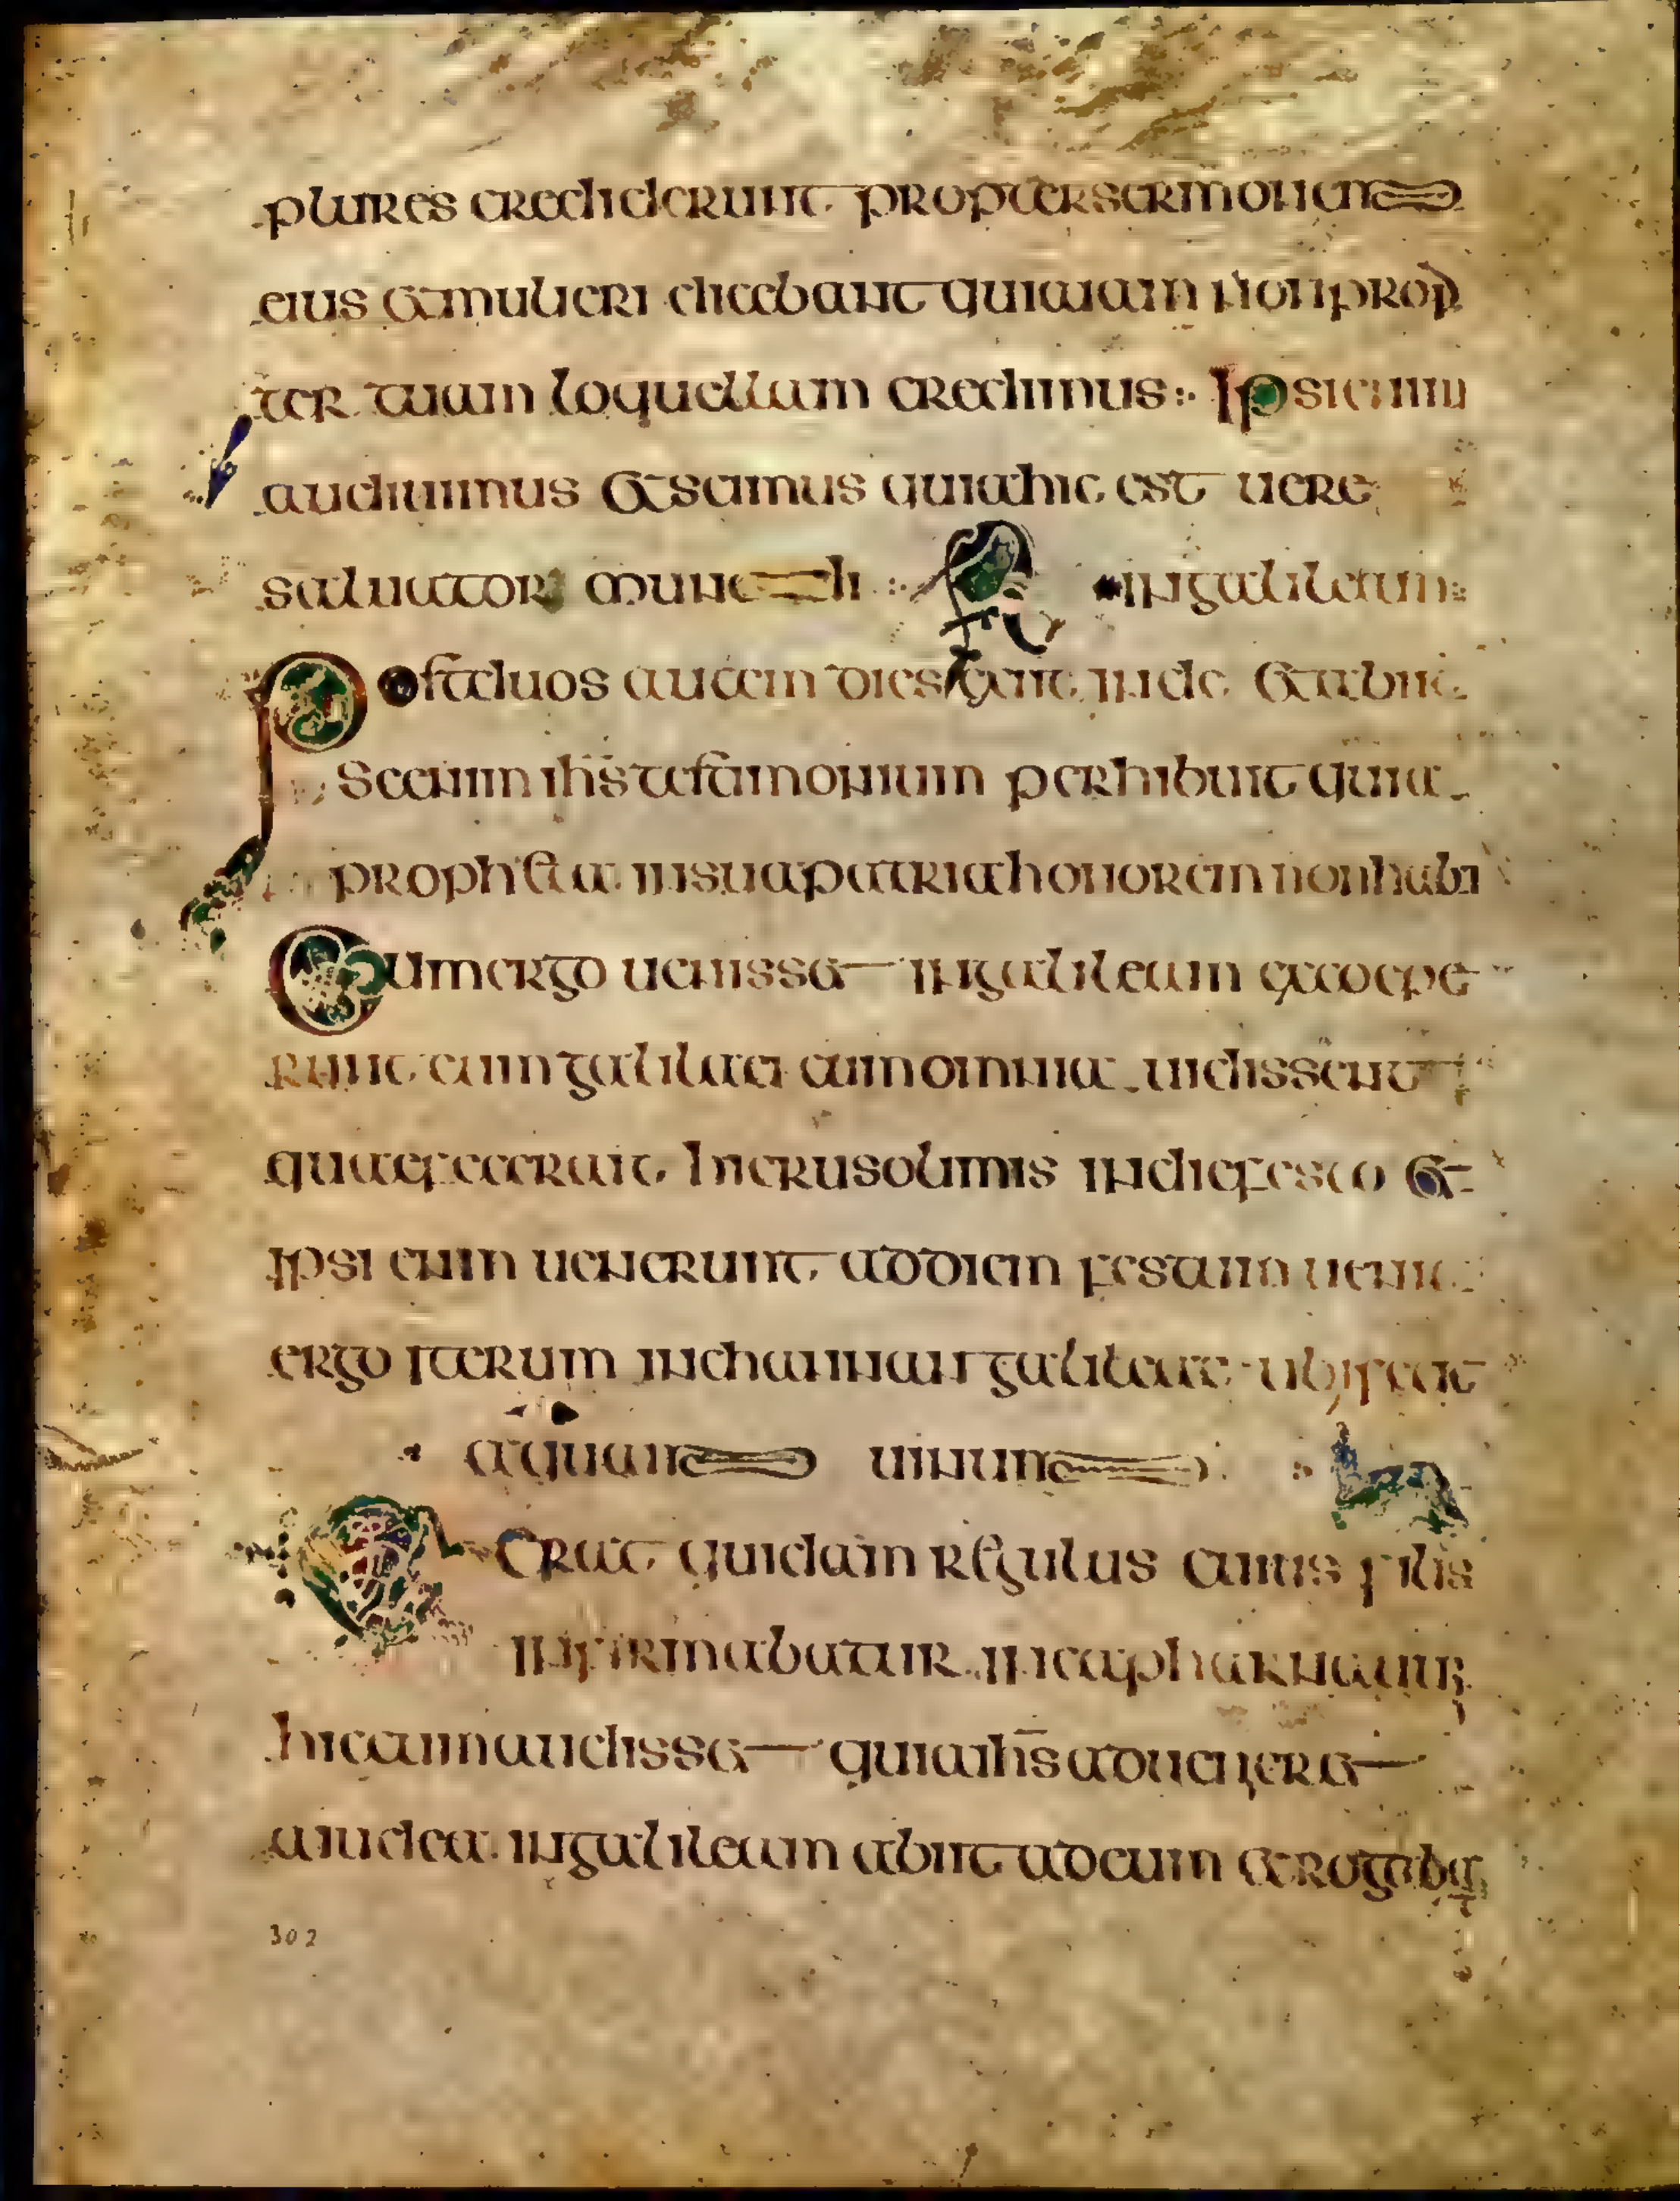 plures crediderunt propter sermonem
eius et mulieri dicebant quia iam non prop
ter tuam loquellam credimus: Ipsi enim
audiuimus et scimus quia hic est uere
saluator mundi :
in galileam:
Post duos autem dies exiit inde et abiit
Se enim ihs testimonium perhibuit quia
propheta in sua patria honorem non habet
Cum ergo uenisset in galileam exceoepe
runt eum galilaei cum omnia uidissent
quae fecerat In erusolimis in die festo et
ipsi enim uenerunt ad diem festum uenit
ergo iterum in channan galileae ubi fecit
aquam uinum
Erat quidam regulus cuius filis
infirmabatur in capharnaum
hic cum audisset quia ihs adueneret
a iudea in galileam abiit ad eum et rogabat
302